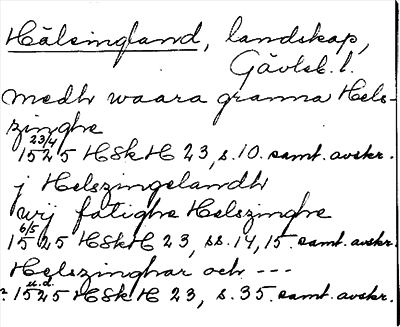 Hälsingland, landskap,
Gävleb. l.
medh waara granna Hels-
zinghe
23/4
1525 HSkH 23, s. 10. samt. avskr.
j Helszingelandh
wij fatighe Helszinghe
6/5
1525 HSkH 23, ss. 14, 15. samt. avskr.
Helszinghar och ---
u.d.
? 1525 HSkH 23, s. 35. samt. avskr.